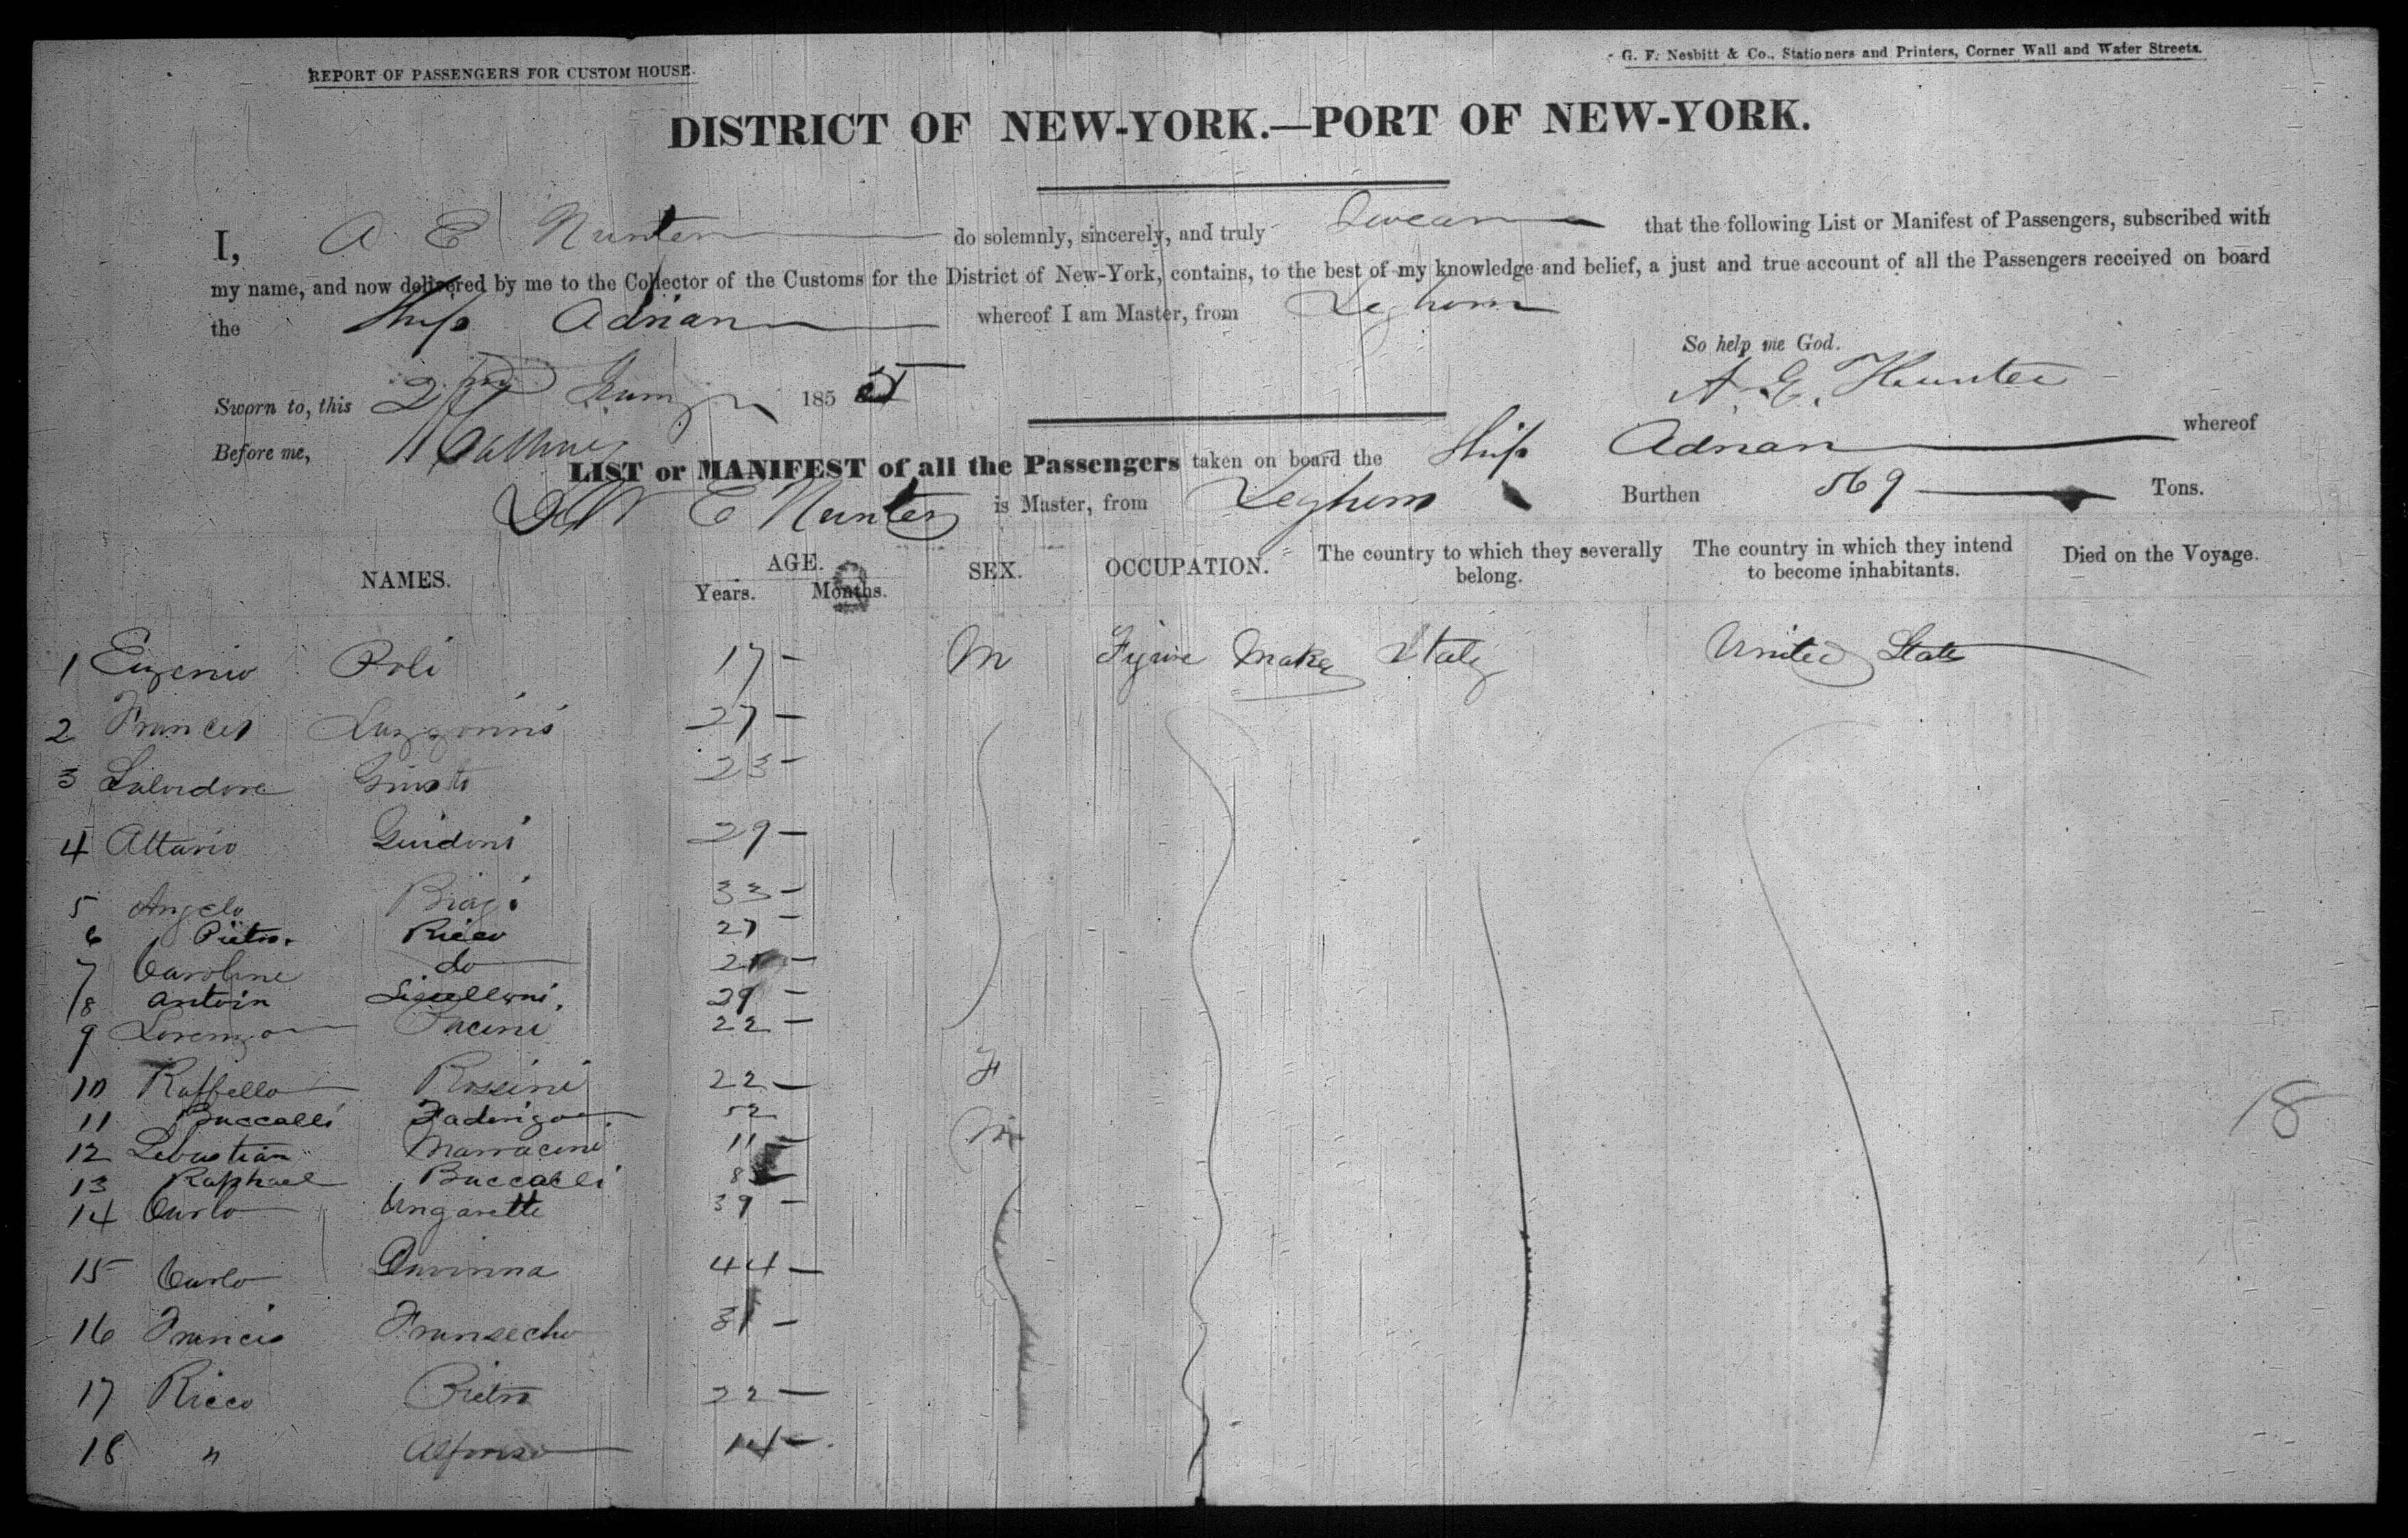 REPORT OF PASSENGERS FOR CUSTOM HOUSE.
G. F. Nesbitt & Co., Stationers and Printers, Corner Wall and Water Streets.
DISTRICT OF NEW-YORK.—PORT OF NEW-YORK.
I, A. E Hunter do solemnly, sincerely, and truly Swear that the following List or Manifest of Passengers, subscribed with
my name, and now delivered by me to the Collector of the Customs for the District of New-York, contains, to the best of my knowledge and belief, a just and true account of all the Passengers received on board
the Ship Adrian whereof I am Master, from Leghorn
So help me God.
A. E. Hunter
Sworn to, this 2 185
Before me,
LIST or MANIFEST of all the Passengers taken on board the Ship Adrian whereof
E Hunter is Master, from Leghorn Burthen 569 Tons.
NAMES. AGE. Years. Months. SEX. OCCUPATION. The country to which they severally belong. The country in which they intend to become inhabitants. Died on the Voyage.
1 Eugenio Poli 17 – M Figure Maker Italy United States
2 Frances 27 –
3 Salvidore Giusti 23 –
4 Attavio Guidoni 29 –
5 Angelo Biagi 33 –
6 Pietro. Ricco 27 –
7 Caroline do 21 –
8 Antoin 29 –
9 Lorenzo Pacini 22 –
10 Raffello Rossini 22 – F
11 Buccalli Faderigo 52
12 Sebastian Marracini 11 – M
13 Raphael Buccalli 8 –
14 Carlo Ungarette 39 –
15 Carlo 44 –
16 Francis Fransecho 31 –
17 Ricco Pietro 22 –
18 " Alfonso 14 –
18